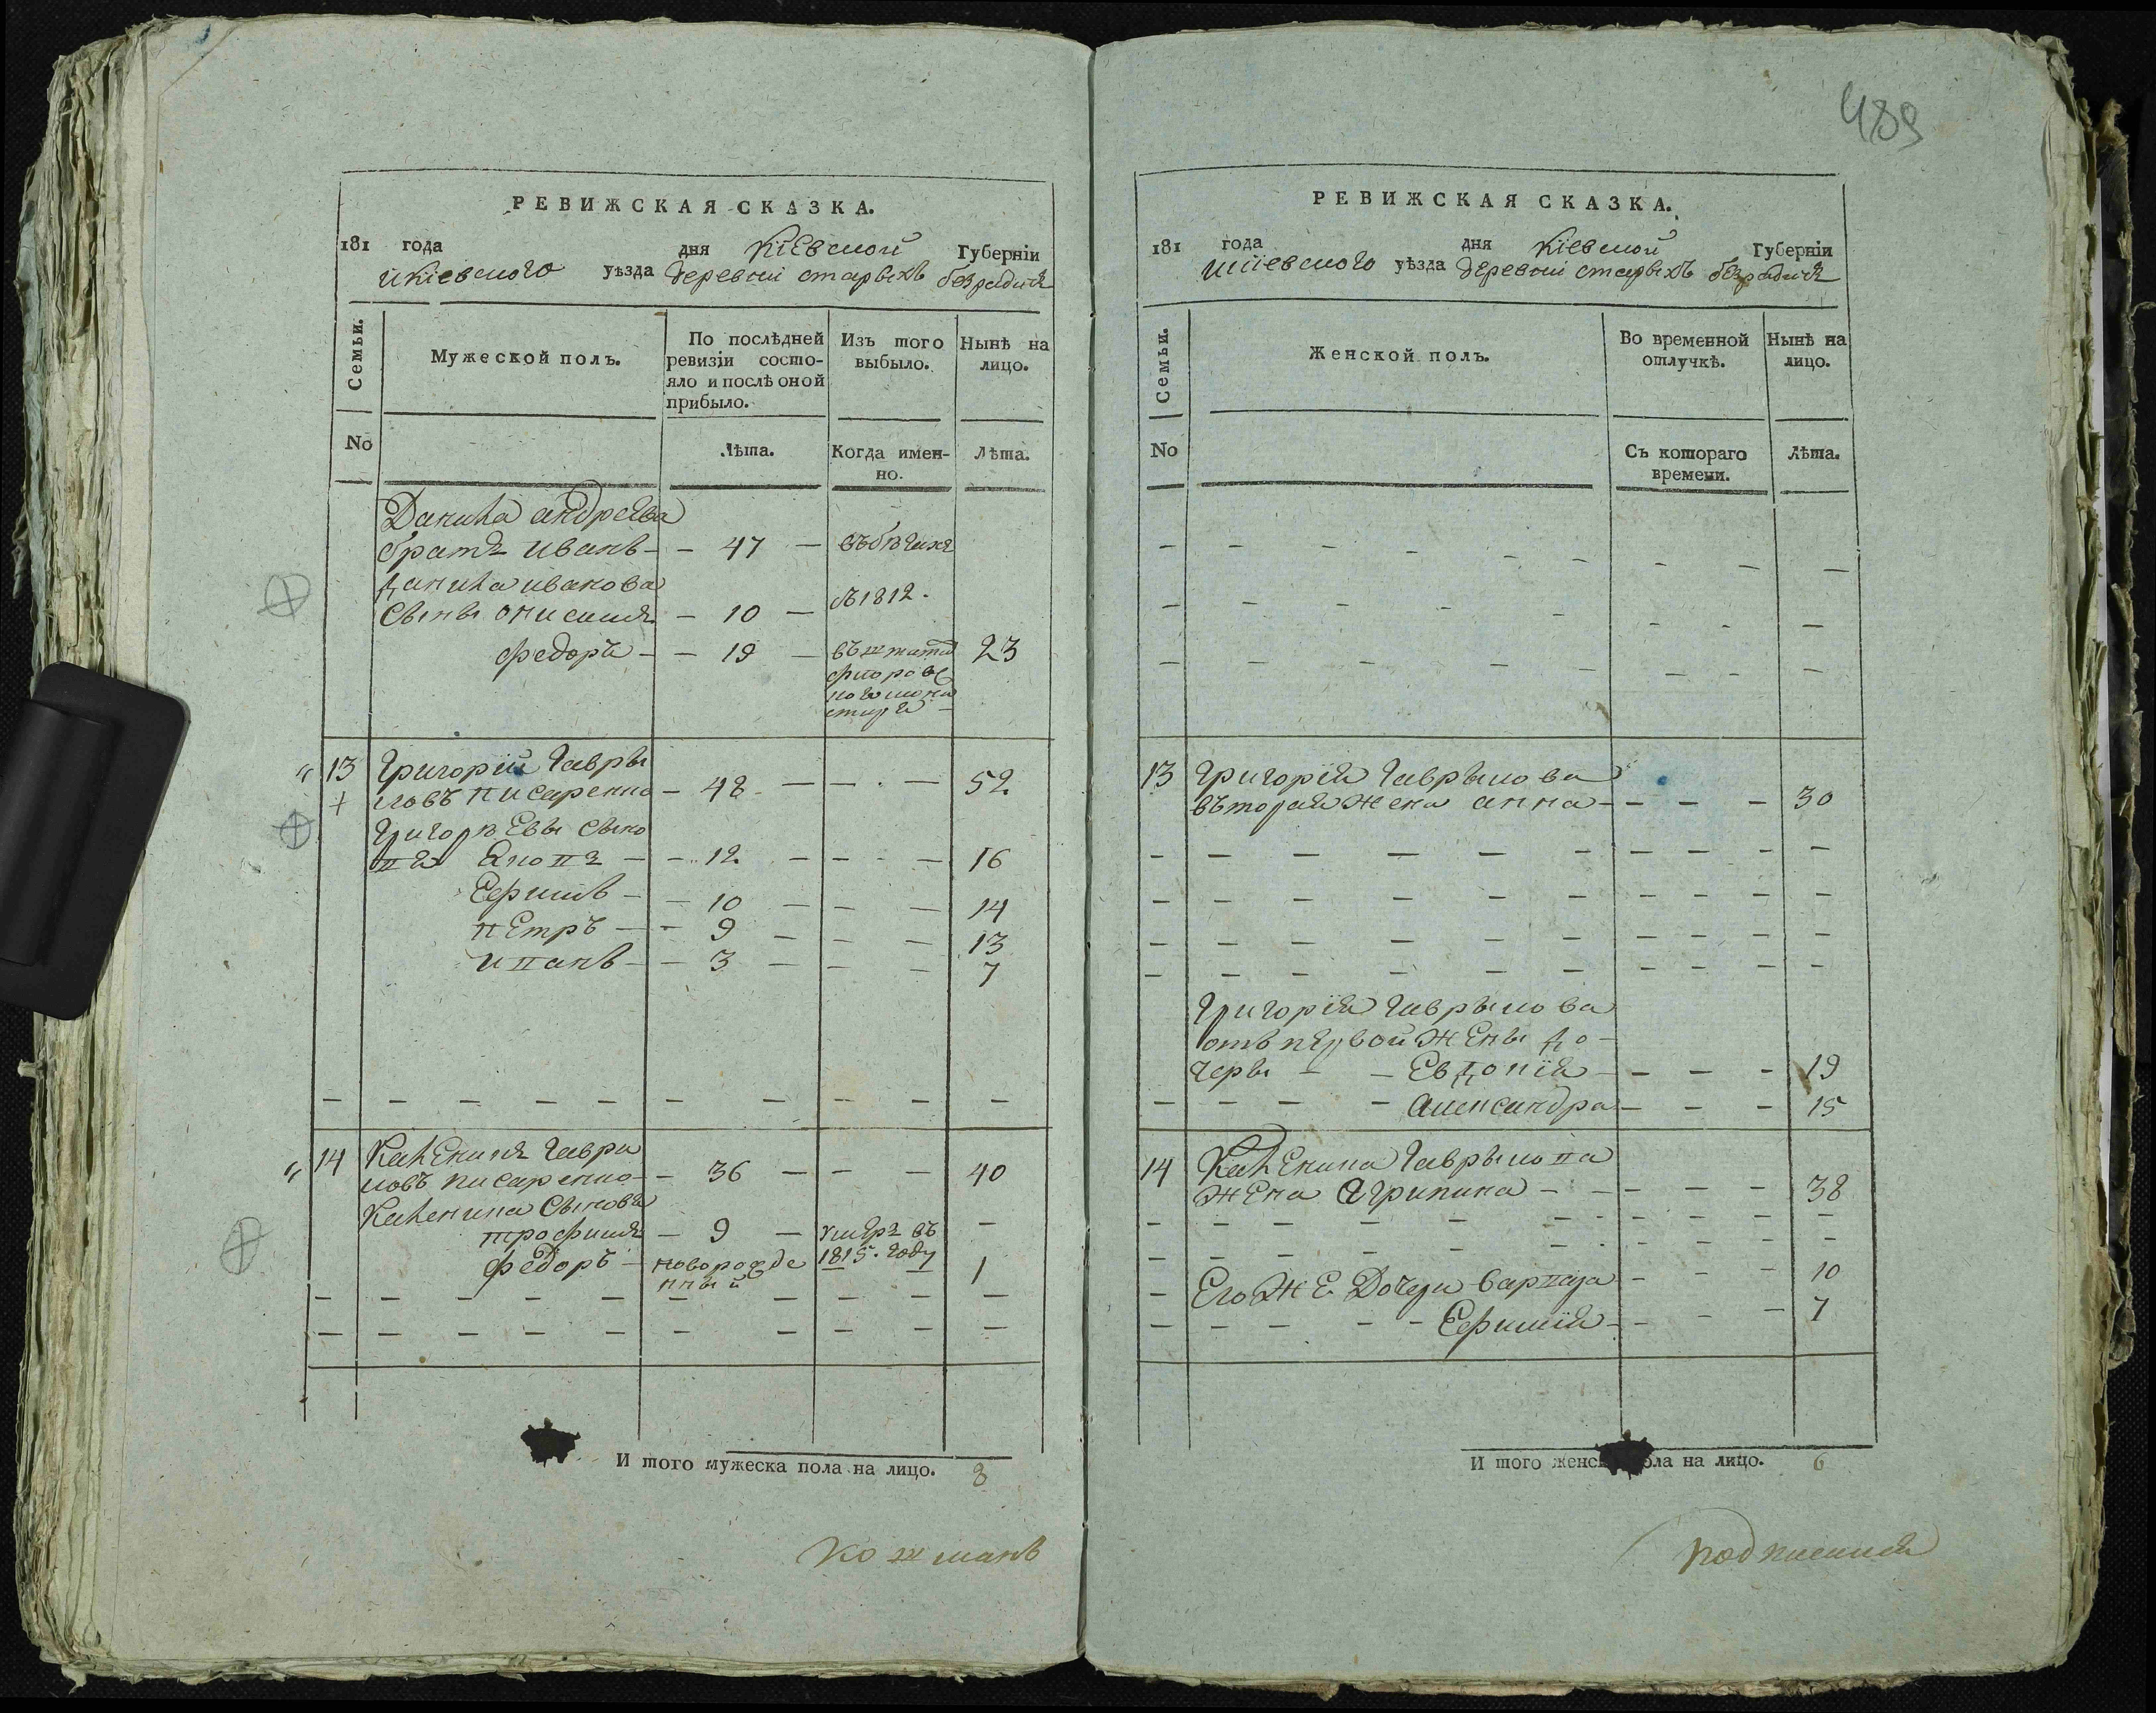 489
РЕВИЖСКАЯ СКАЗКА.
181 года дня Кіевской Губерніи
икіевского уѣзда деревни старыхъ безрадичъ
Семьи.
Мужеской полъ.
По послѣдней ревизіи состо-
яло и послѣ оной
прибыло.
Изъ того
выбыло.
Нынѣ на
лицо.
No
Лѣта.
Когда имен-
но.
Лѣта.
Данила андреева
братъ иванъ - - 47 - въбѣгахъ
данила иванова
сыны онисимъ - 10 - съ1812.
федоръ - - 19 - 23
13 Григорий Гавры
ловъ писаренко - 48 - - . - 52.
Григорьевы сыно
вя - - 12. - - . - 16
Ефимъ - - 10 - - - 14
пЕтръ - - 9 - - - 13
иванъ - - 3 - - - 7
14 Каленикъ Гаври
ловъ писаренко - - 36 - - - 40
Каленика Сыновя
трофимъ - 9 - умеръ въ -
федоръ - новорожде 1815. году 1
нный
И того мужеска пола на лицо. 8
кожманъ
РЕВИЖСКАЯ СКАЗКА.
181 года дня Кіевской Губерніи
икіевского уѣзда деревни старыхъ безрадичъ
Семьи.
Женской полъ.
Во временной
отлучкѣ.
Нынѣ на
лицо.
No
Съ котораго
времени.
Лѣта.
13 Григорія Гаврылова
въторая жена анна - - - - 30
Григорія Гаврылова
отъ первой жЕны до-
черы - - Евдокія - - - - 19
- - - - александра - - - 15
14 КалЕника Гаврылова
жЕна агрипина - - - - - 38
Его жЕ Дочери варвара - - - 10
- - - - - Ефимія - - - - 7
И того женск ола на лицо. 6